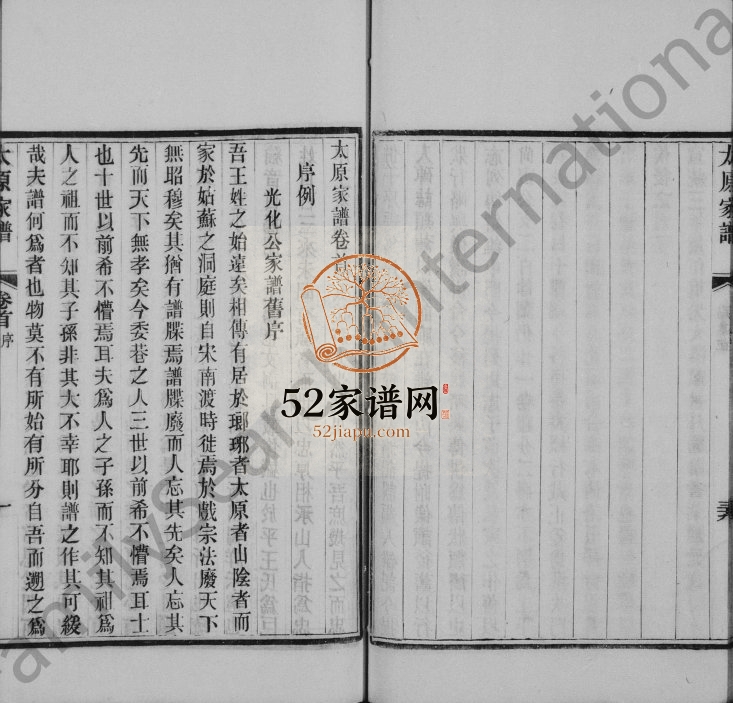 太原家譜卷首
序例
光化公家譜舊序
吾王姓之始遠矣相傳有居於瑯琊者太原者山陰者而
家於姑蘇之洞庭則自宋南渡時徙焉於戲宗法廢天下
無昭穆矣其猶有譜牒焉譜牒廢而人忘其先矣人忘其
先而天下無孝矣今委巷之人三世以前希不懵焉耳士
也十世以前希不懵焉耳夫爲人之子孫而不知其祖爲
人之祖而不知其子孫非其大不幸耶則譜之作其可緩
哉夫譜何爲者也物莫不有所始有所分自吾而遡之爲
太原家譜
卷首
序
一
太原家譜
52家谱网
52jiapu.com
FamilySearch International